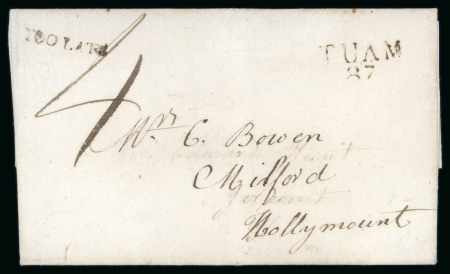 TOO LATE
TUAM
87
4
Mrs C. Bowen
Milford
Hollymount